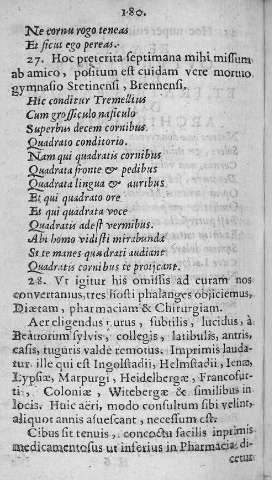 180.
Ne cornu rogo teneas
Et sicut ego pereas.
27. Hoc preterita septimana mihi missum
ab amico, positum est cuidam vere mortuo
gymnasio Stetinensi, Brennensi.
Hic conditur Tremellius
Cum grossiculo nasiculo
Superbus decem cornibus.
Quadrato conditorio.
Nam qui quadratis cornibus
Quadrata fronte & pedibus
Quadrata lingua & auribus
Et qui quadrato ore
Et qui quadrata voce
Quadratis adest vermibus.
Abi homo vidisti mirabunda
Si te manes quadrati audiant
Quadratis cornibus te proijcant.
28. Ut igitur his omissis ad curam nos
convertamus, tres hosti phalanges objiciemus,
Diætam, pharmaciam & Chirurgiam.
Aer eligendus purus, subtilis, lucidus, à
Beanorum sylvis, collegiis, latibulis, antris,
casis, tuguriis valde remotus. Imprimis lauda-
tur ille qui est Ingolstadii, Helmstadii, Ienæ,
Lypsiæ, Marpurgi, Heidelbergæ, Francofur-
ti, Coloniæ, Witebergæ & similibus in
locis. Huic aëri, modo consultum sibi velint,
aliquot annis asuescant, necessum est.
Cibus sit tenuis, concoctu facilis inprimis
medicamentosus ut inferius in Pharmacia di-
cetur